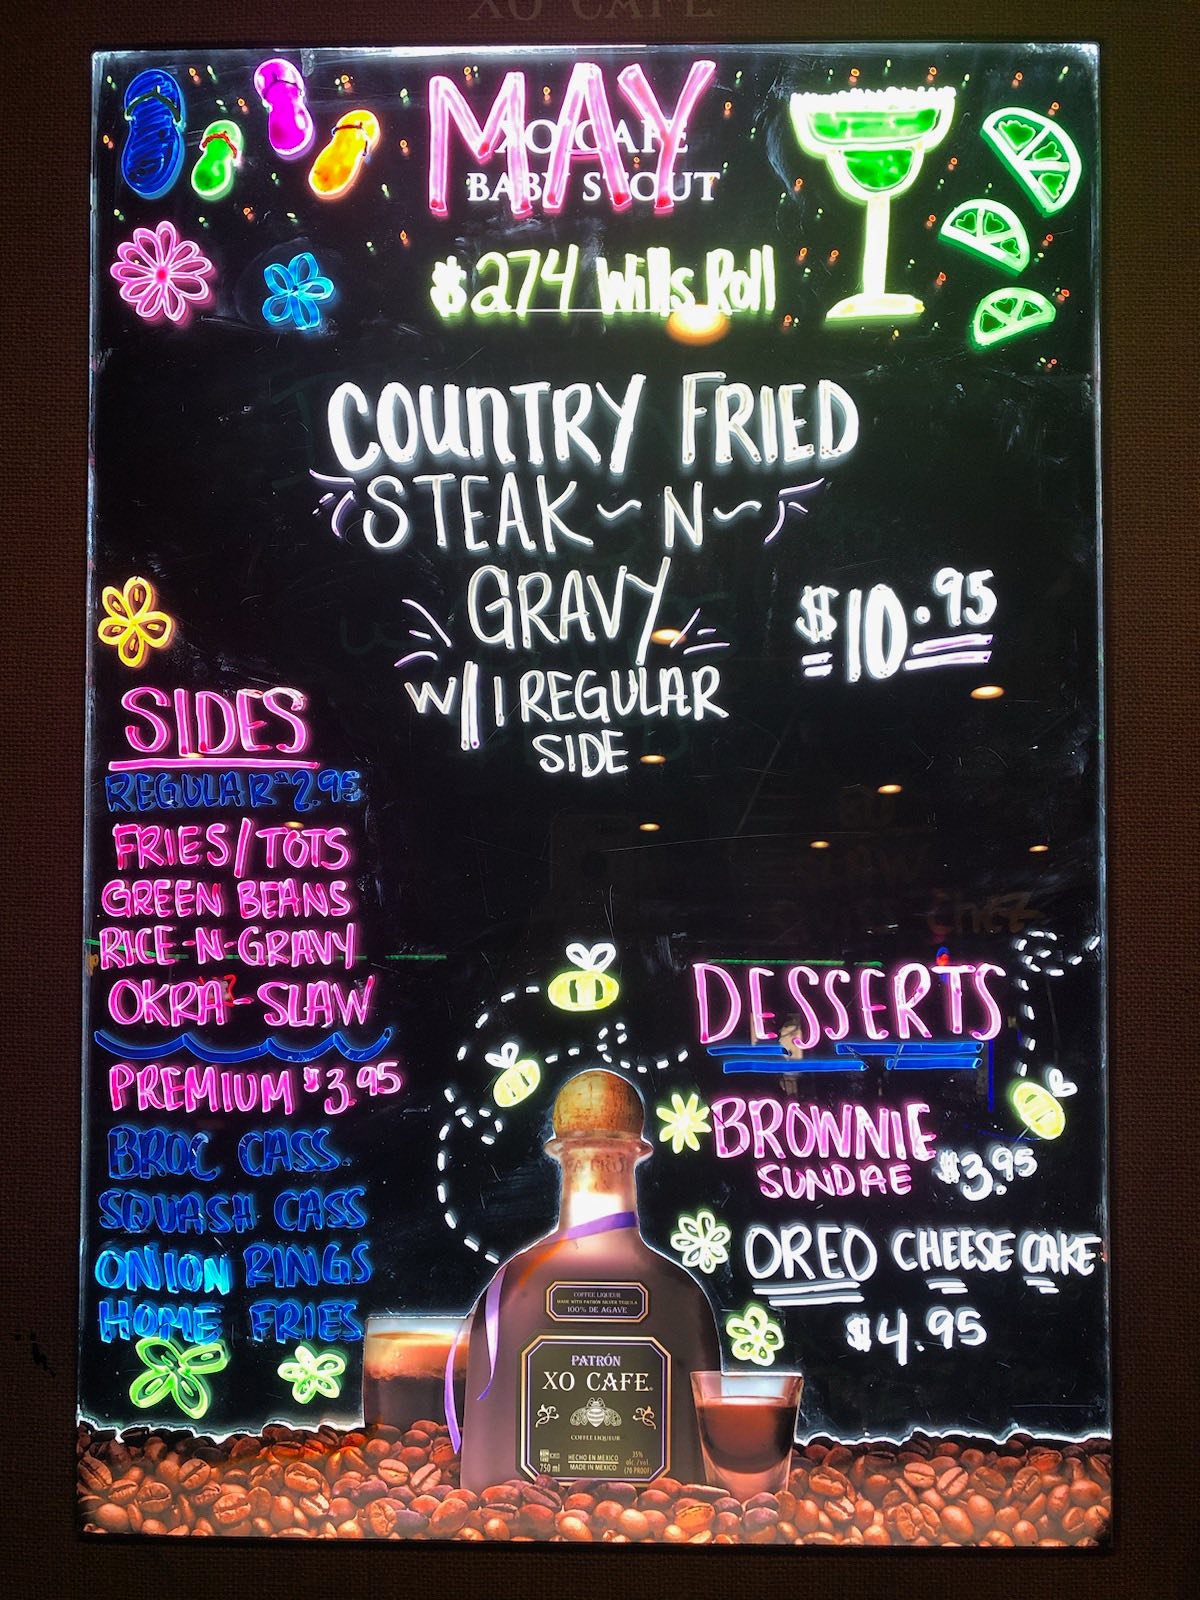 XO CAFE
MAY
XO CAFE
BABY STOUT
$274 Wills Roll
COUNTRY FRIED
STEAK ~ N ~
GRAVY
$10.95
W/ 1 REGULAR
SIDE
SIDES
REGULAR $2.95
FRIES/TOTS
GREEN BEANS
RICE-N-GRAVY
OKRA-SLAW
PREMIUM $3.95
BROC CASS.
SQUASH CASS
ONION RINGS
HOME FRIES
DESSERTS
BROWNIE
SUNDAE $3.95
OREO CHEESE CAKE
$4.95
PATRÓN
COFFEE LIQUEUR
MADE WITH PATRÓN SILVER TEQUILA
100% DE AGAVE
PATRÓN
XO CAFE
COFFEE LIQUEUR
750 ml
HECHO EN MEXICO
MADE IN MEXICO
35%
alc./vol.
(70 PROOF)